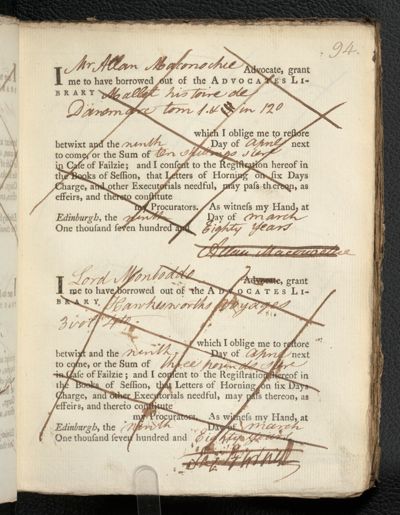 94.
I Mr Allan Maconochie Advocate, grant
me to have borrowed out of the ADVOCATES LI-
BRARY Mallet histoire de
Danemarc tom 1. & in 12o
which I oblige me to restore
betwixt and the ninth Day of April next
to come, or the Sum of ten shillings ster
in Case of Failzie; and I consent to the Registration hereof in
the Books of Session, that Letters of Horning on six Days
Charge, and other Executorials needful, may pass thereon, as
effeirs, and thereto constitute
my Procurators. As witness my Hand, at
Edinburgh, the ninth Day of march
One thousand seven hundred and Eighty Years
Allan Maconochie
I Lord Monboddo Advocate, grant
me to have borrowed out of the ADVOCATES LI-
BRARY, Hawkesworths Voyages
3 vol 4to
which I oblige me to restore
betwixt and the ninth Day of April next
to come, or the Sum of three pounds ster
in Case of Failzie; and I consent to the Registration hereof in
the Books of Session, that Letters of Horning on six Days
Charge, and other Executorials needful, may pass thereon, as
effeirs, and thereto constitute
my Procurators. As witness my Hand, at
Edinburgh, the ninth Day of march
One thousand seven hundred and Eighty Years